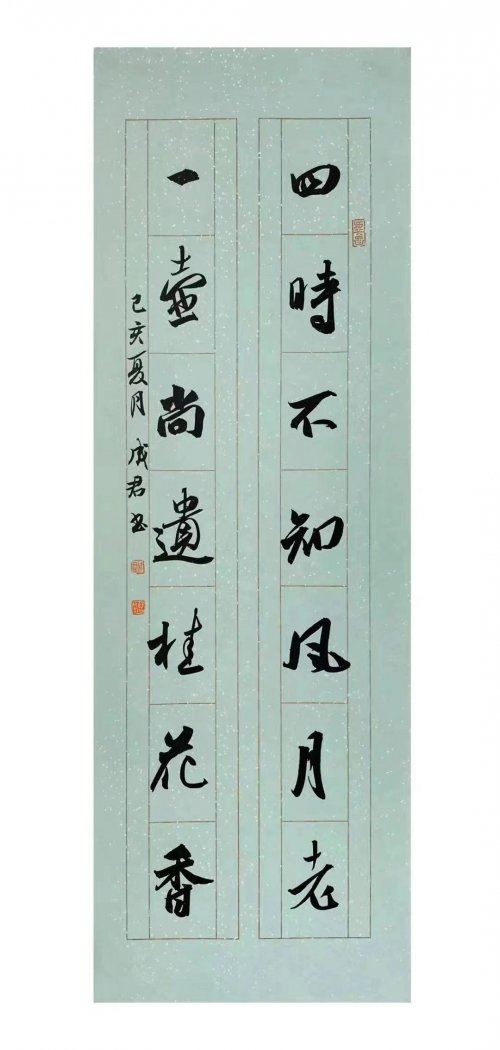 四時不知风月老
一壺尚遺桂花香
己亥夏月 成君书